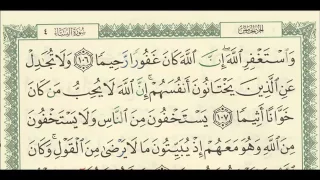 الجزء الخامس سورة النساء ٤
وَاسْتَغْفِرِ اللَّهَ إِنَّ اللَّهَ كَانَ غَفُورًا رَّحِيمًا ١٠٦ وَلَا تُجَادِلْ
عَنِ الَّذِينَ يَخْتَانُونَ أَنفُسَهُمْ إِنَّ اللَّهَ لَا يُحِبُّ مَن كَانَ
خَوَّانًا أَثِيمًا ١٠٧ يَسْتَخْفُونَ مِنَ النَّاسِ وَلَا يَسْتَخْفُونَ
مِنَ اللَّهِ وَهُوَ مَعَهُمْ إِذْ يُبَيِّتُونَ مَا لَا يَرْضَىٰ مِنَ الْقَوْلِ وَكَانَ